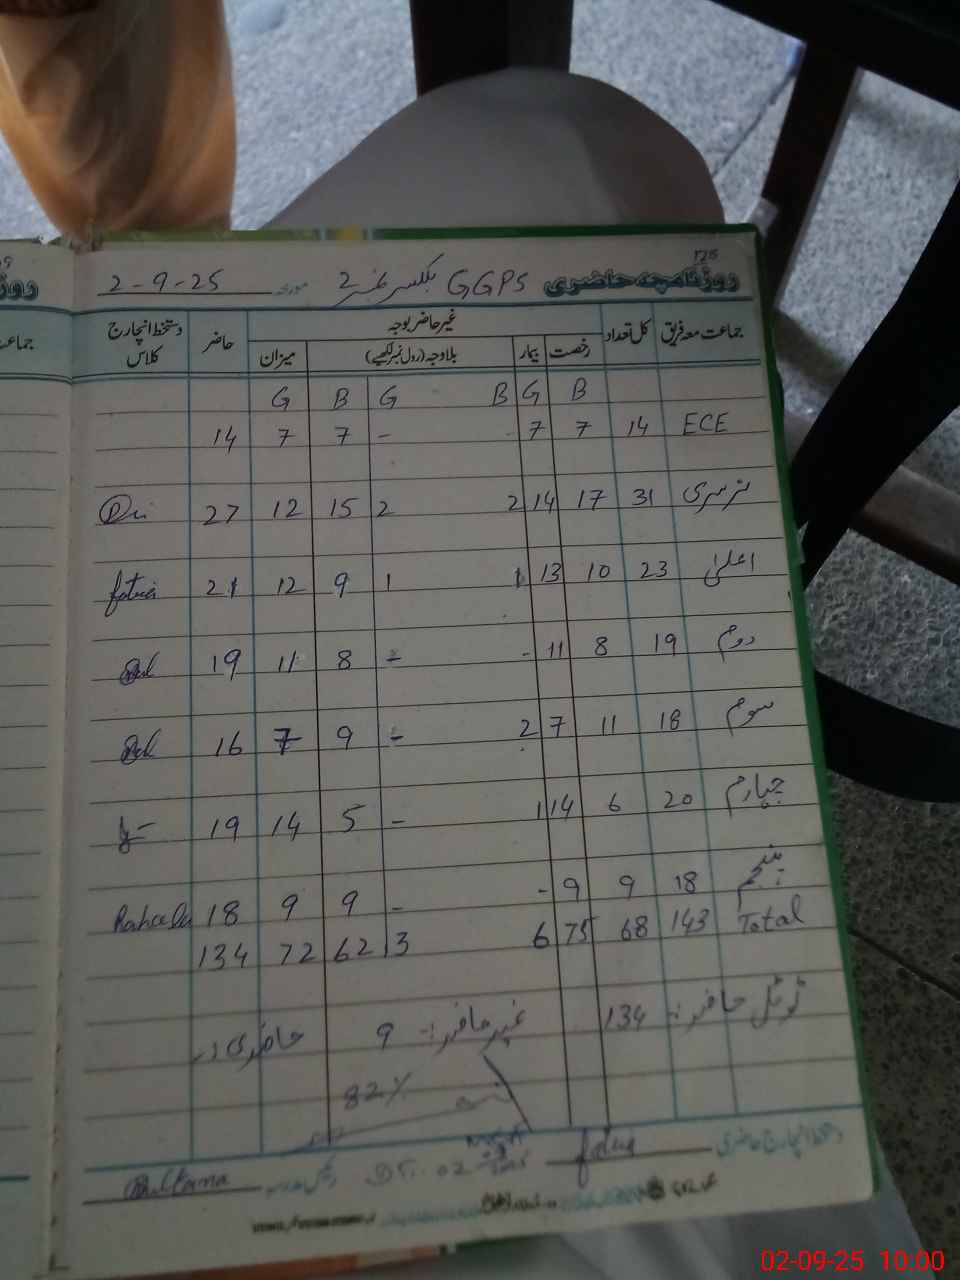 126
روزنامچہ حاضری GGPS بکسر نمبر 2 مورخہ 2-9-25
جماعت معہ فریق کل تعداد غیر حاضر بوجہ حاضر دستخط انچارج کلاس
رخصت بیمار بلاوجہ (رول نمبر لکھیے) میزان
B G B G B G
ECE 14 7 7 - - 7 7 14
نرسری 31 17 14 2 2 15 12 27
اعلیٰ 23 10 13 1 1 9 12 21
دوم 19 8 11 - - 8 11 19
سوم 18 11 7 2 - 9 7 16
چہارم 20 6 14 1 - 5 14 19
پنجم 18 9 9 - - 9 9 18 Raheela
Total 143 68 75 6 3 62 72 134
ٹوٹل حاضر :- 134 غیر حاضر :- 9 حاضری :-
82%
دستخط انچارج حاضری
02-09-25 10:00